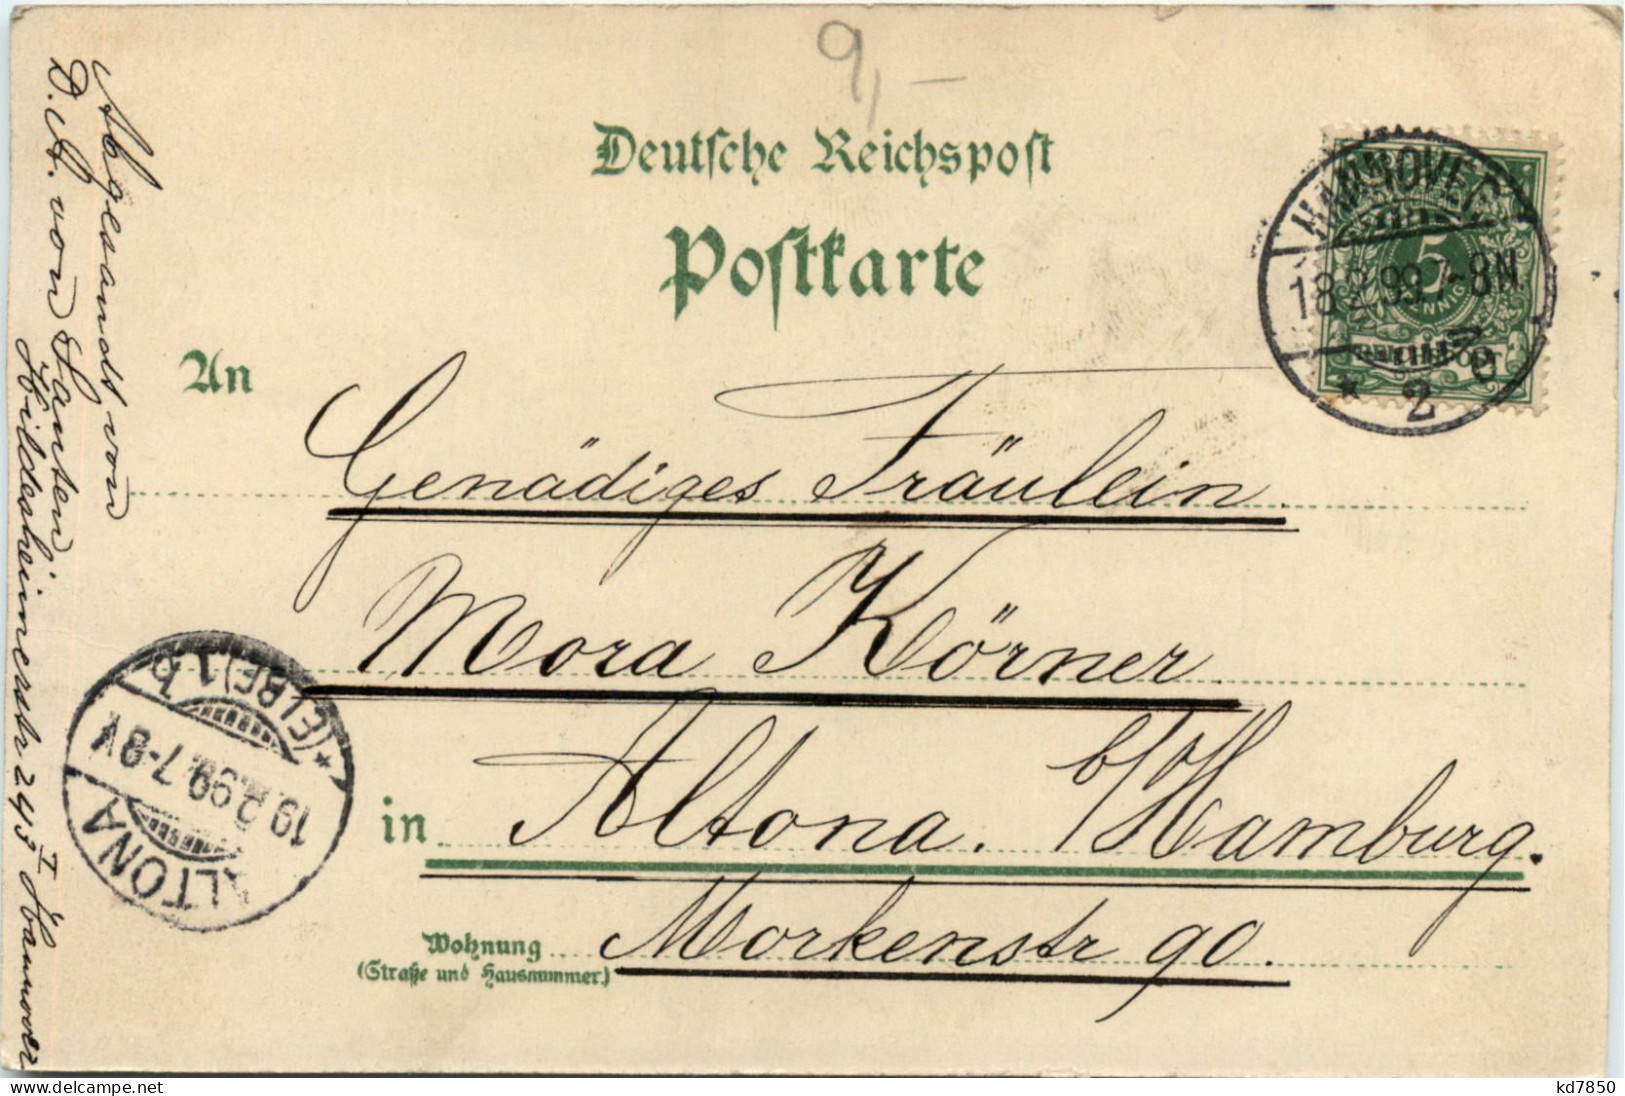 9,-
Deutsche Reichspost
Postkarte
HANNOVER
18.2.99.7-8N
* 2 c
5
PFENNIG
REICHSPOST
An
Genädiges Fräulein
Mora Körner
in Altona. b/Hamburg.
Wohnung
(Straße und Hausnummer)
Morkenstr 90.
Abgesandt von
D. A. von Santen
Hildesheimerstr 243 I Hannover
ALTONA
19.2.99.7-8V
*(ELBE)1b
delcampe.net
kd7850